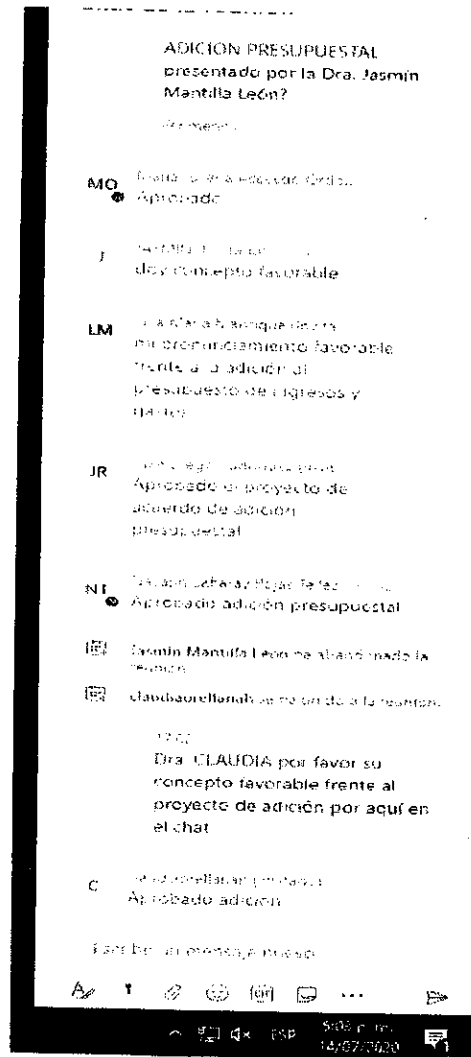 ADICION PRESUPUESTAL
presentado por la Dra. Jasmín
Mantilla León?
MO
Aprobado
J
doy concepto favorable
LM
mi pronunciamiento favorable
frente a la adición al
presupuesto de ingresos y
gastos
JR
Aprobado el proyecto de
acuerdo de adición
presupuestal
NT
Aprobado adición presupuestal
Jasmin Mantilla León ha abandonado la
reunión.
claudiaorellanah se ha unido a la reunión.
Dra. CLAUDIA por favor su
concepto favorable frente al
proyecto de adición por aquí en
el chat
C
Aprobado adición
Escribe un mensaje nuevo
GIF
ESP
5:03 p. m.
14/07/2020